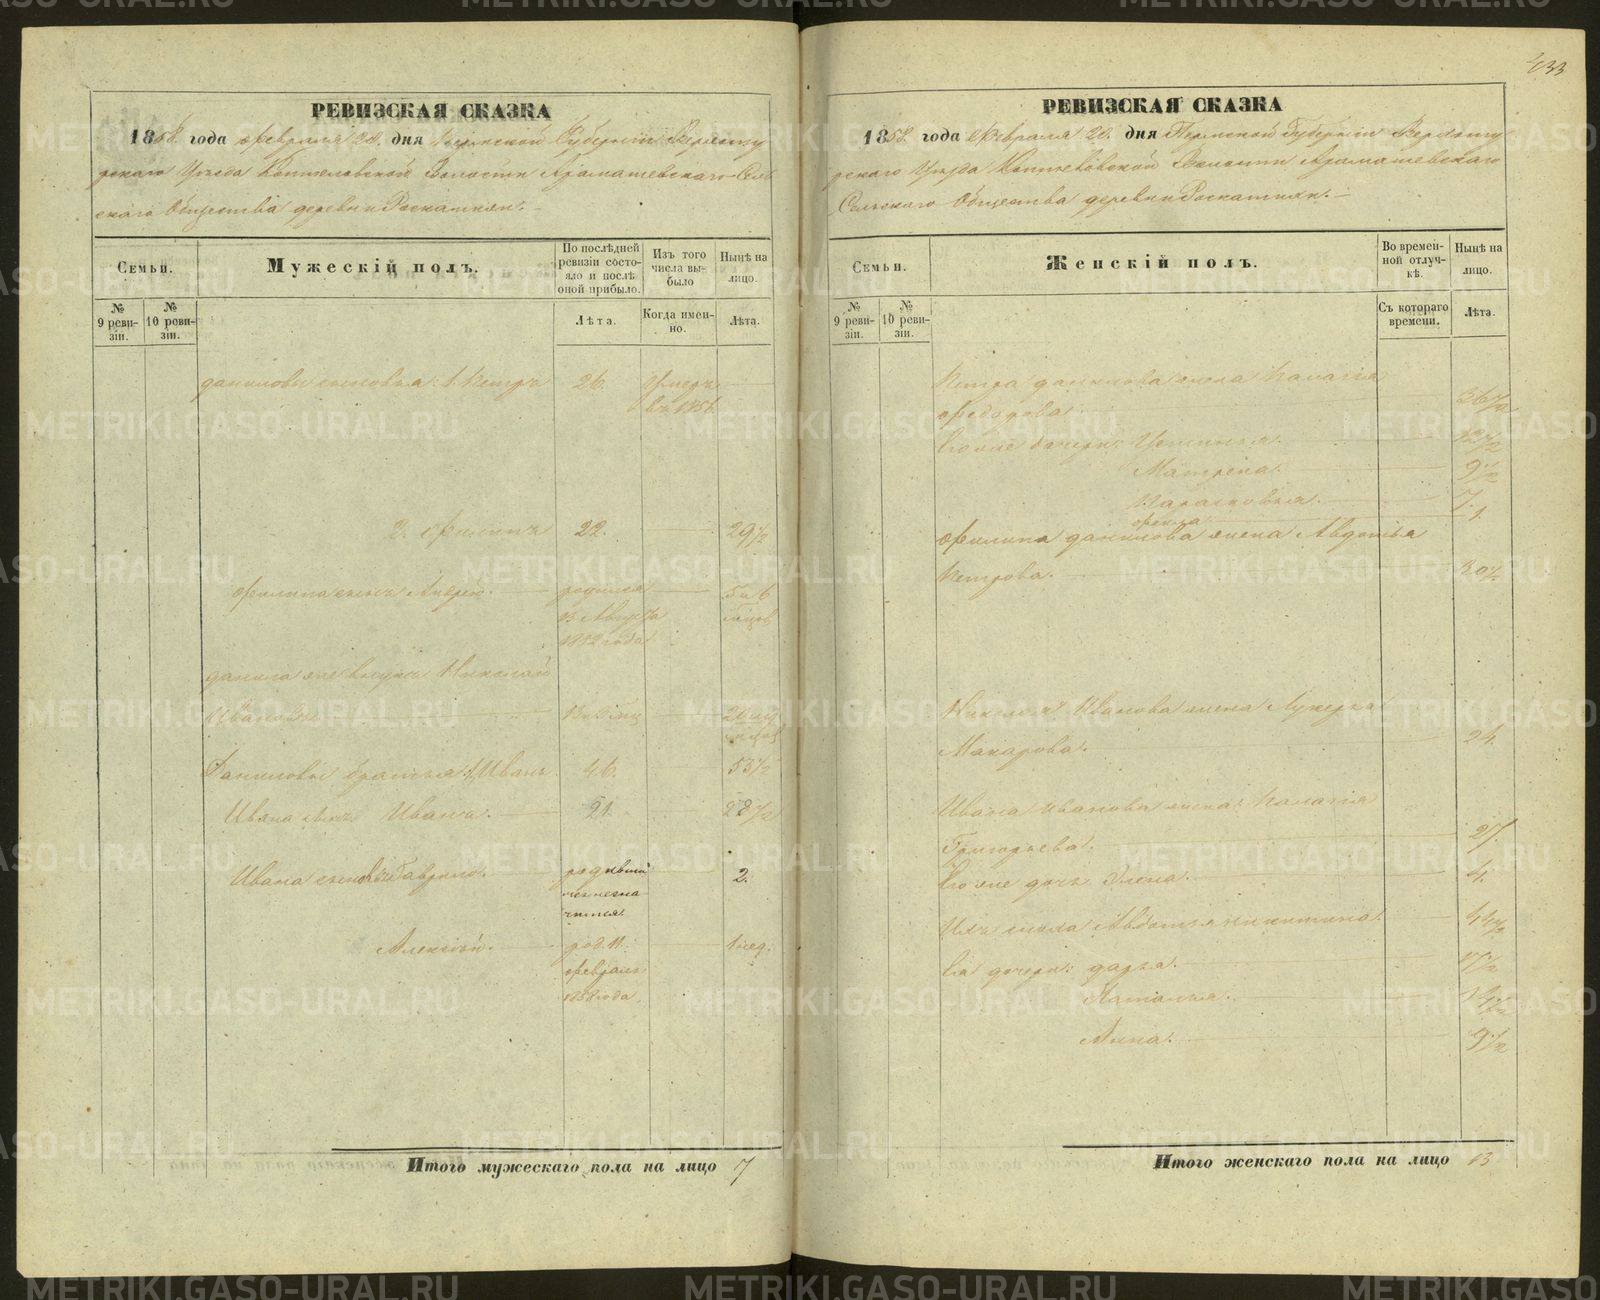 433
РЕВИЗСКАЯ СКАЗКА
1858. года февраля 20. дня Пермской Губернiи Верхоту
рскаго Уезда Коптеловской Волости Арамашевскаго Сель
скаго Общества деревни Роскатихи.
Семьи.
Мужескiй полъ.
По послѣдней ревизiи состояло и послѣ оной прибыло.
Изъ того числа выбыло
Нынѣ на лицо.
№ 9 ревизiи.
№ 10 ревизiи.
Лѣта.
Когда именно.
Лѣта.
Даниловы сыновья: 1. Петръ 26. Умеръ
въ 1856.
2. Филипъ 22. 29 1/2
Филипа сынъ Андрей. родился 5 и 6
в Августа
1852 года
Данила же внукъ Николай
Ивановъ
Даниловы братья: Иванъ. 46. 53 1/2
Ивана сынъ Иванъ. 21. 28 1/2
Ивана сыновья: Гаврило. 2.
Алексѣй. род. 11 1 нед.
февраля
1858 года
Итого мужескаго пола на лицо 7
РЕВИЗСКАЯ СКАЗКА
1858. года Февраля 20. дня Пермской Губернiи Верхоту
рскаго Уезда Коптеловской Волости Арамашевскаго
Сельскаго Общества деревни Роскатихи.
Семьи.
Женскiй полъ.
Во временной отлучкѣ.
Нынѣ на лицо.
№ 9 ревизiи.
№ 10 ревизiи.
Съ котораго времени.
Лѣта.
Петра Данилова жена Палагiя
Федорова. 36 1/2
Его же дочери: Устинья. 12 1/2
Матрена. 9 1/2
Парасковья. 7.
1.
Филипа Данилова жена Авдотья
Петрова. 30 1/2
Николая Иванова жена Лукерья
Макарова. 24.
Ивана Иванова жена: Палагiя
Григорьева. 27.
Его же дочь Елена. 4.
Авдотья Никитина. 44 1/2
Ея дочери: Дарья. 17 1/2
Татьяна. 14 1/2
Анна. 9 1/2
Итого женскаго пола на лицо 13
METRIKI.GASO-URAL.RU